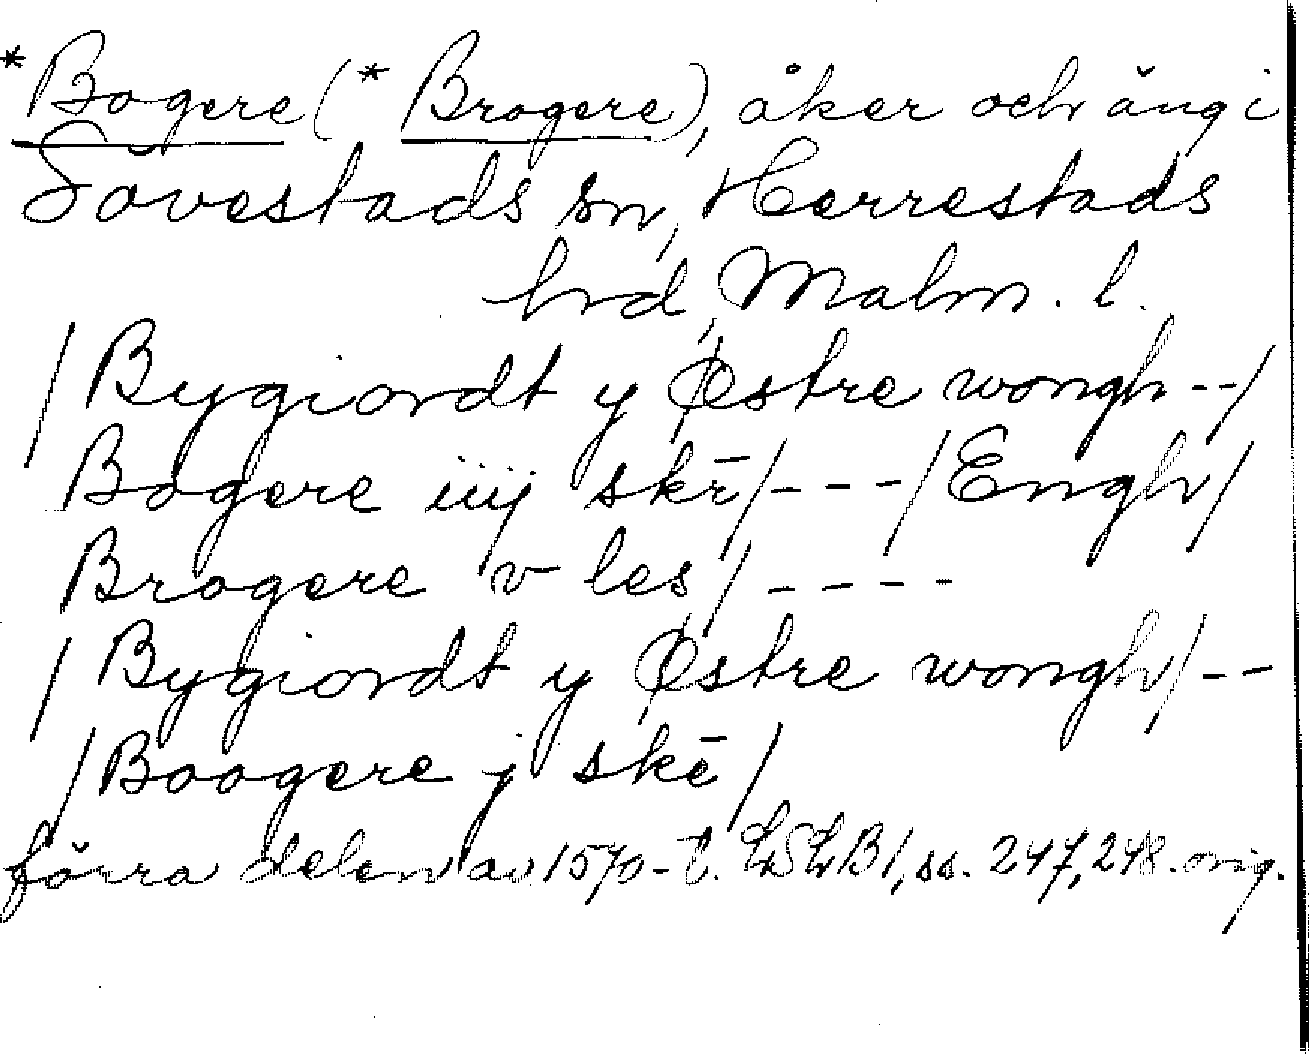 *Bogere (*Brogere), åker och äng i
Sövestads sn, Herrestads
hrd, Malm. l.
/Bygiordt y Østre wongh--/
Bogere iiij skē/---/Engh/
Brogere v les/----
/Bygiordt y Østre wongh/--
/Boogere j skē/
förra delen av 1570-t. LSLB1, ss. 247, 248. orig.